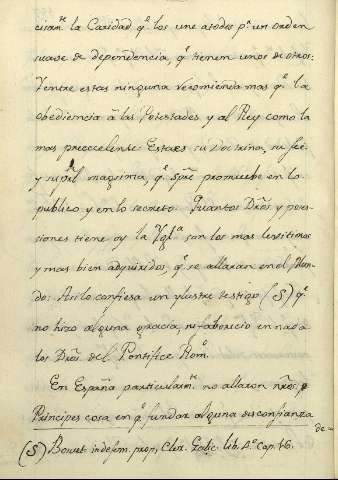 cisam.te la Caridad q.e los une a todos p.r un orden
suave de dependencia, q.e tienen unos de otros:
Y entre estas ninguna recomienda mas q.e la
obediencia a las Potestades y al Rey como la
mas precelente. Esta es su Doctrina, su fee
y su pral maquinia, q.e spre promuebe en lo
publico y en lo secreto. Quantos Dros. y pose-
siones tiene oy la Ygl.a son los mas legitimos
y mas bien adquiridos, q.e se allaran en el Mun-
do: Asi lo confiesa un ylustre testigo (S) q.e
no hizo alguna gracia, ni faborecio en nada
a los Dros. del Pontifice Rom.o
En España particularm.te no allaron nros.
Principes cosa en q.e fundar alguna desconfianza
de=
(S) Bosuet in defens. prop. Cler. Galic. lib. 1.o Cap. 16.